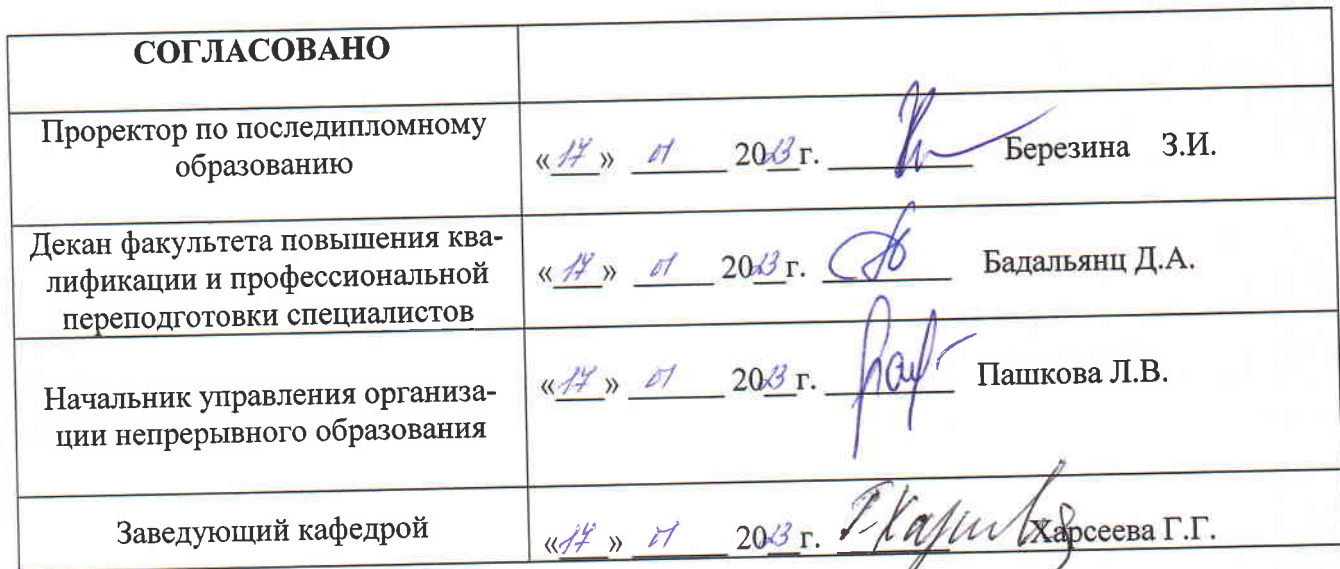 СОГЛАСОВАНО
Проректор по последипломному
образованию
«17» 01 2023 г. Березина З.И.
Декан факультета повышения ква-
лификации и профессиональной
переподготовки специалистов
«17» 01 2023 г. Бадальянц Д.А.
Начальник управления организа-
ции непрерывного образования
«17» 01 2023 г. Пашкова Л.В.
Заведующий кафедрой
«17» 01 2023 г. Харсеева Г.Г.